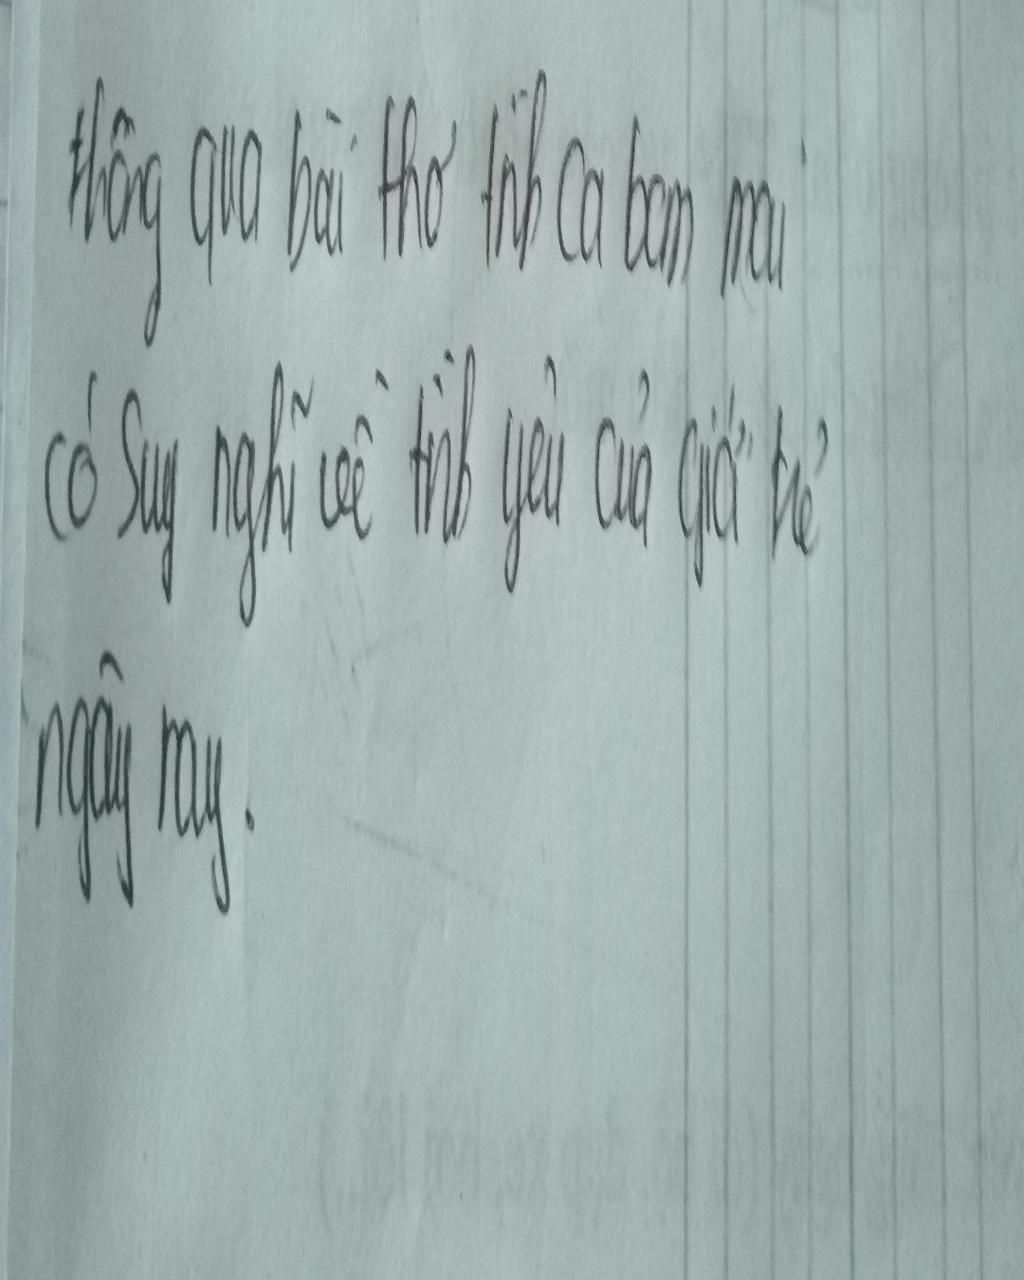 thông qua bài thơ tình ca ban mai
có suy nghĩ về tình yêu của giới trẻ
ngày nay.